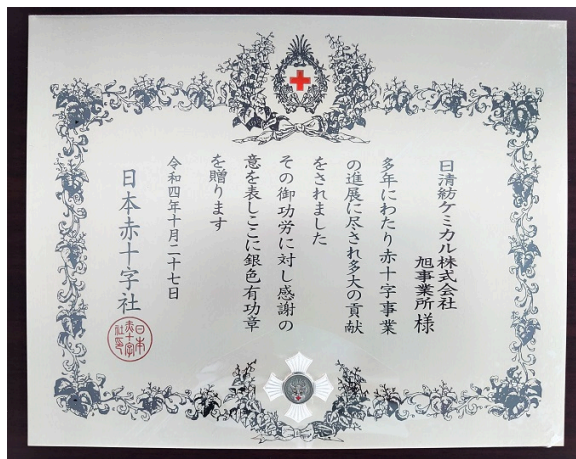 日清紡ケミカル株式会社
旭事業所 様
多年にわたり赤十字事業
の進展に尽され多大の貢献
をされました
その御功労に対し感謝の
意を表しここに銀色有功章
を贈ります
令和四年十月二十七日
日本赤十字社
日本
赤十字
社印